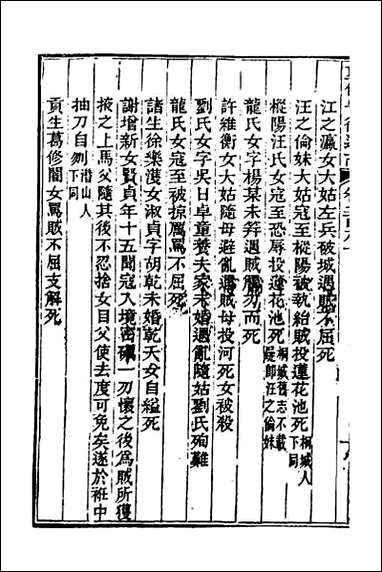 江之瀛女大姑左兵破城遇賊不屈死
汪之倫妹大姑寇至樅陽被執紿賊投蓮花池死桐城人下同
樅陽汪氏女寇至恐辱投蓮花池死桐城舊志不載疑即汪之倫妹
龍氏女字楊某未笄遇賊觸刃而死
許維衡女大姑隨母避亂遇賊母投河死女被殺
劉氏女字吳日卓童養夫家未婚遇亂隨姑劉氏殉難
龍氏女寇至被掠厲罵不屈死
諸生徐樂漢女淑貞字胡乾未婚乾夭女自縊死
謝增新女賢貞年十五聞寇入境密礪一刃懷之後爲賊所獲
掖之上馬父隨其後不忍捨女目父使去度可免矣遂於袵中
抽刀自刎潛山人下同
貢生葛修閣女罵賊不屈支解死